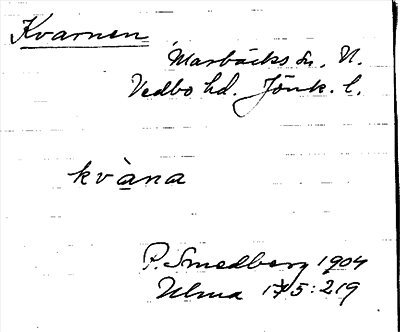 Kvarnen
Marbäcks sn. N.
Vedbo hd. Jönk. l.
kvàna
P. Smedberg 1904
Ulma 175:219